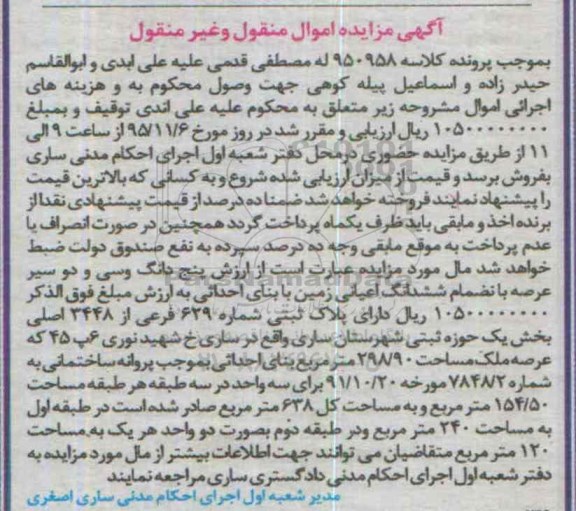 آگهی مزایده اموال منقول وغیر منقول
بموجب پرونده کلاسه ۹۵۰۹۵۸ له مصطفی قدمی علیه علی ابدی و ابوالقاسم
حیدر زاده و اسماعیل پیله کوهی جهت وصول محکوم به و هزینه های
اجرائی اموال مشروحه زیر متعلق به محکوم علیه علی اندی توقیف و بمبلغ
۱۰۵۰۰۰۰۰۰۰۰ ریال ارزیابی و مقرر شد در روز مورخ ۹۵/۱۱/۶ از ساعت ۹ الی
۱۱ از طریق مزایده حضوری درمحل دفتر شعبه اول اجرای احکام مدنی ساری
بفروش برسد و قیمت از میزان ارزیابی شده شروع و به کسانی که بالاترین قیمت
را پیشنهاد نمایند فروخته خواهد شد ضمنا ده درصد از قیمت پیشنهادی نقدا از
برنده اخذ و مابقی باید ظرف یکماه پرداخت گردد همچنین در صورت انصراف یا
عدم پرداخت به موقع مابقی وجه ده درصد سپرده به نفع صندوق دولت ضبط
خواهد شد مال مورد مزایده عبارت است از ارزش پنج دانگ وسی و دو سیر
عرصه با نضمام ششدانگ اعیانی زمین با بنای احداثی به ارزش مبلغ فوق الذکر
۱۰۵۰۰۰۰۰۰۰۰ ریال دارای پلاک ثبتی شماره ۶۳۹ فرعی از ۳۴۴۸ اصلی
بخش یک حوزه ثبتی شهرستان ساری واقع در ساری خ شهید نوری ۶پ ۴۵ که
عرصه ملک مساحت ۲۹۸/۹۰ متر مربع بنای احداثی بموجب پروانه ساختمانی به
شماره ۷۸۴۸/۲ مورخه ۹۱/۱۰/۲۰ برای سه واحد در سه طبقه هر طبقه مساحت
۱۵۴/۵۰ متر مربع و به مساحت کل ۶۳۸ متر مربع صادر شده است در طبقه اول
به مساحت ۲۴۰ متر مربع ودر طبقه دوم بصورت دو واحد هر یک به مساحت
۱۲۰ متر مربع متقاضیان می توانند جهت اطلاعات بیشتر از مال مورد مزایده به
دفتر شعبه اول اجرای احکام مدنی دادگستری ساری مراجعه نمایند
مدیر شعبه اول اجرای احکام مدنی ساری اصغری